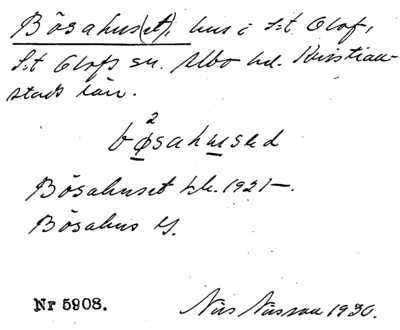 Bösahus(et), hus i S:t Olof,
S:t Olofs sn. Albo hd. Kristian-
stads län.
bø²sahused
Bösahuset hk. 1921–.
Bösahus
Nr 5908.
Nils Nilsson 1930.